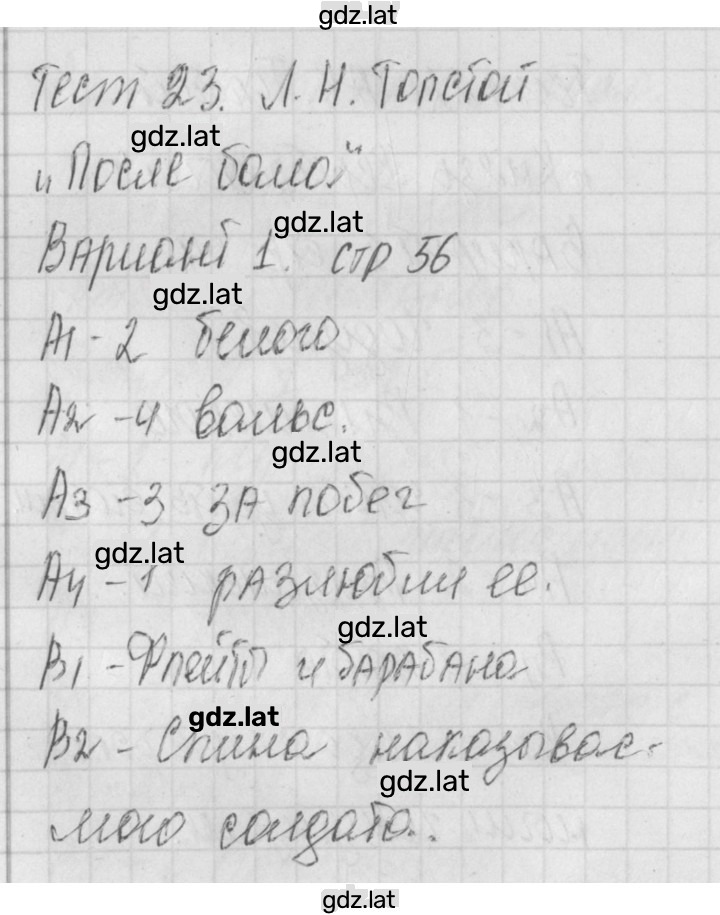 gdz.lat
Тест 23. Л. Н. Толстой
gdz.lat
„После бала"
gdz.lat
Вариант 1. стр 56
gdz.lat
А1 - 2 белого
А2 - 4 вальс.
gdz.lat
А3 - 3 за побег
gdz.lat
А4 - 1 разлюбил ее.
gdz.lat
В1 - Флейты и барабана
gdz.lat
В2 - Спина наказывае-
gdz.lat
мого солдата.
gdz.lat